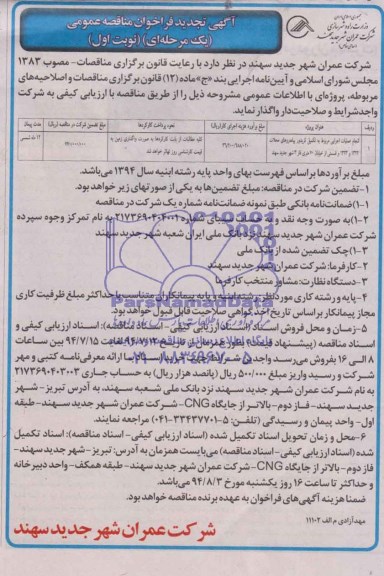 آگهی تجدید فراخوان مناقصه عمومی
(یک مرحله‌ای) (نوبت اول)
شرکت عمران شهر جدید سهند در نظر دارد با رعایت قانون برگزاری مناقصات - مصوب ۱۳۸۳
مجلس شورای اسلامی و آیین‌نامه اجرایی بند «ج» ماده (۱۲) قانون برگزاری مناقصات و اصلاحیه‌های
مربوطه، پروژه‌ای با اطلاعات عمومی مشروحه ذیل را از طریق مناقصه با ارزیابی کیفی به شرکت
واجد شرایط و صلاحیت‌دار واگذار نماید.
مبلغ برآوردها براساس فهرست بهای واحد پایه رشته ابنیه سال ۱۳۹۴ می‌باشد.
۱- تضمین شرکت در مناقصه: مبلغ تضمین‌ها به یکی از صورتهای زیر خواهد بود.
۱-۱) ضمانت‌نامه بانکی طبق نمونه ضمانت‌نامه شماره یک شرکت در مناقصه
۱-۲) به صورت وجه نقد و به حساب سیبای شماره ۲۱۷۳۶۹۰۴۰۴۰۰۱ به نام تمرکز وجوه سپرده
شرکت عمران شهر جدید سهند نزد بانک ملی ایران شعبه شهر جدید سهند
۱-۳) چک تضمین شده از بانک ملی
۲- کارفرما: شرکت عمران شهر جدید سهند
۳- دستگاه نظارت: مشاور منتخب کارفرما
۴- پایه و رشته کاری مورد نظر: رشته ابنیه و پایه پیمانکاران متناسب با حداکثر مبلغ ظرفیت کاری
مجاز پیمانکار براساس تاریخ اخذ گواهی صلاحیت قابل قبول خواهد بود.
۵- زمان و محل فروش اسناد (اسناد ارزیابی کیفی - اسناد مناقصه): اسناد ارزیابی کیفی و
۸ الی ۱۶ بفروش می‌رسد
شرکت و رسید واریز مبلغ ۵۰۰/۰۰۰ ریال (پانصد هزار ریال) به حساب جاری ۲۱۷۳۶۹۰۴۰۳۰۰۳
به نام شرکت عمران شهر جدید سهند نزد بانک ملی شعبه سهند، به آدرس تبریز - شهر
جدید سهند - فاز دوم - بالاتر از جایگاه CNG - شرکت عمران شهر جدید سهند - طبقه
اول - واحد پیمان و رسیدگی (تلفن: ۵-۳۳۴۳۷۷۰۱-۰۴۱) مراجعه نمایند.
۶- محل و زمان تحویل اسناد تکمیل شده (اسناد ارزیابی کیفی - اسناد مناقصه): اسناد تکمیل
شده (اسناد ارزیابی کیفی - اسناد مناقصه) می‌بایست همزمان به آدرس: تبریز - شهر جدید سهند -
فاز دوم - بالاتر از جایگاه CNG - شرکت عمران شهر جدید سهند - طبقه همکف - واحد دبیرخانه
و حداکثر تا ساعت ۱۶ روز یکشنبه مورخ ۹۴/۸/۳ می‌باشد.
ضمنا هزینه آگهی‌های فراخوان به عهده برنده مناقصه خواهد بود.
مهد آزادی م الف ۱۱۱۰۲
شرکت عمران شهر جدید سهند